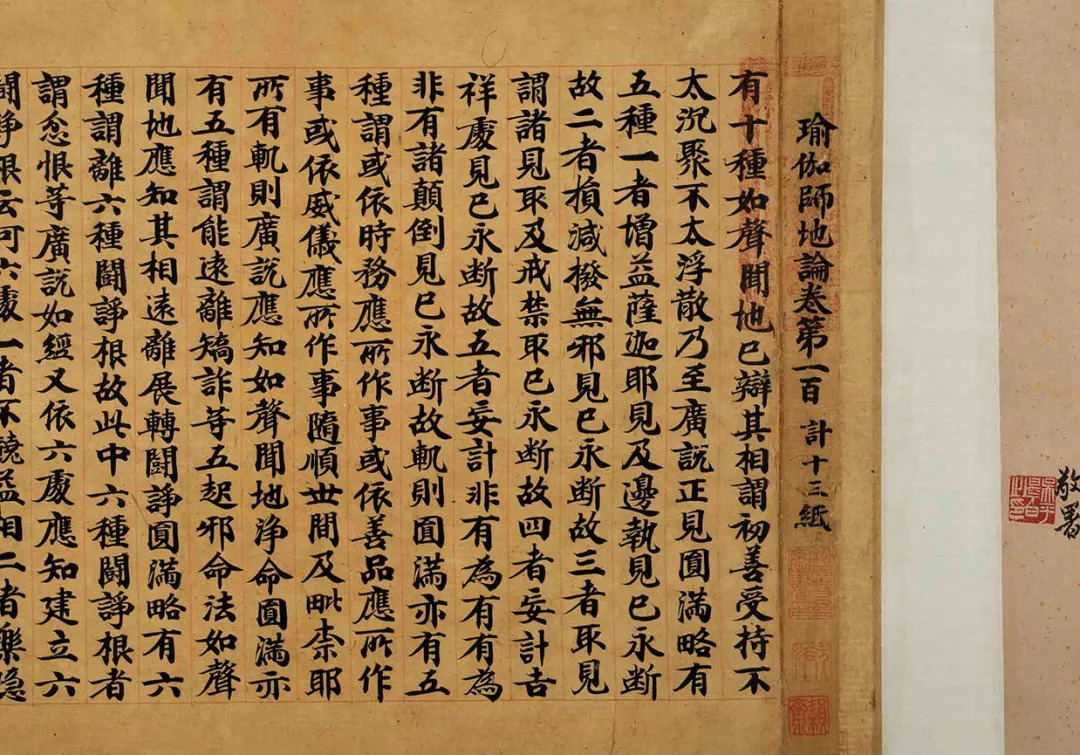 敬署
瑜伽師地論卷第一百 計十三紙
有十種如聲聞地已辯其相謂初善受持不
太沉聚不太浮散乃至廣説正見圓滿略有
五種一者增益薩迦耶見及邊執見已永斷
故二者損減撥無邪見已永斷故三者取見
謂諸見取及戒禁取已永斷故四者妄計吉
祥處見已永断故五者妄計非有為有有為
非有諸顛倒見已永断故軌則圓滿亦有五
種謂或依時務應所作事或依善品應所作
事或依威儀應所作事隨順世間及毗柰耶
所有軌則廣説應知如聲聞地淨命圓滿亦
有五種謂能遠離矯詐等五起邪命法如聲
聞地應知其相遠離展轉鬪諍圓滿略有六
種謂離六種鬪諍根故此中六種鬪諍根者
謂忿恨等廣說如經又依六處應知建立六
鬪諍根云何六處一者不饒益相二者樂隱